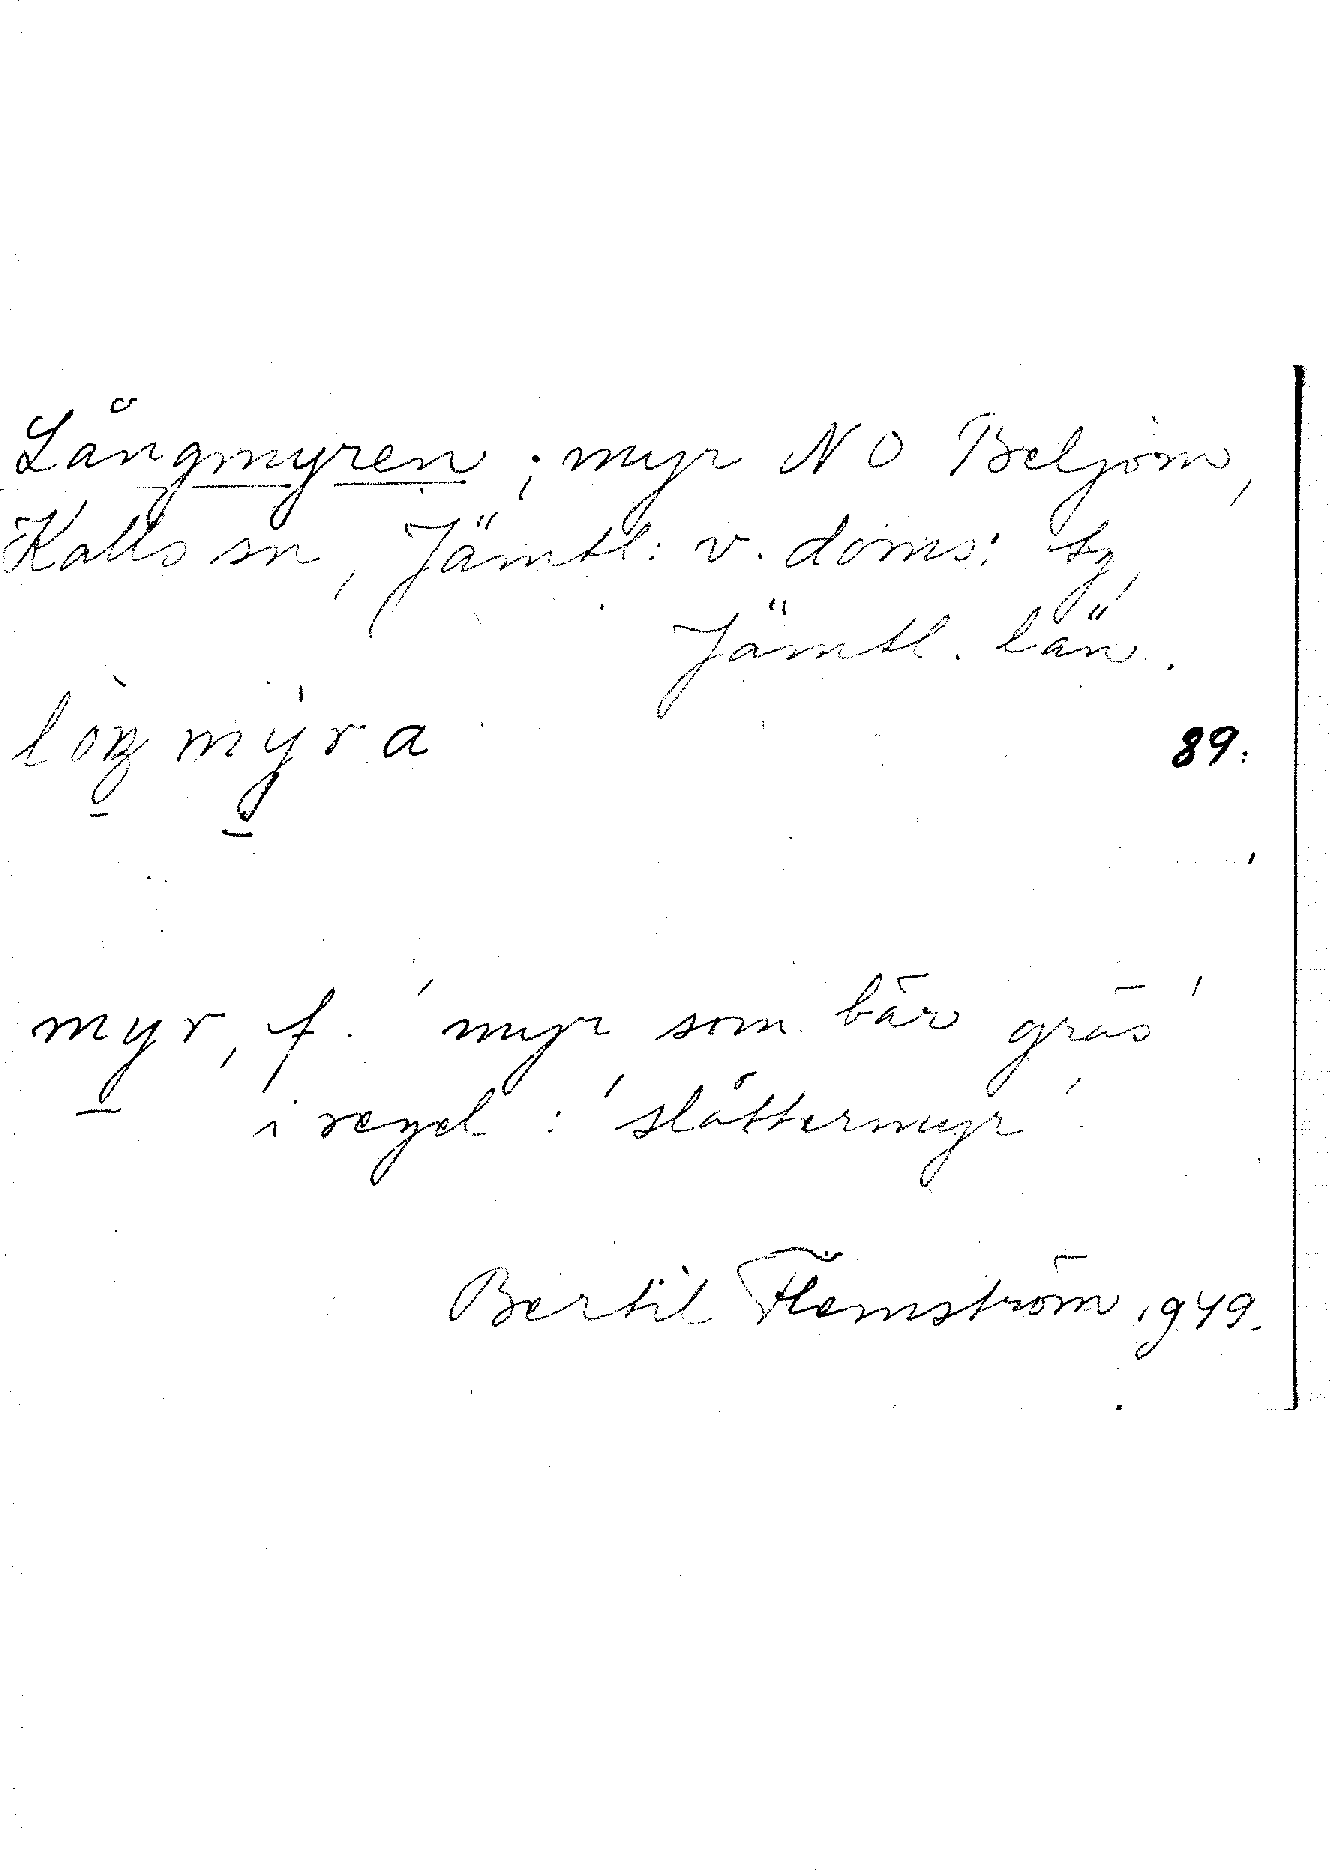 Långmyren; myr NO Beljom,
Kalls sn, Jämtl: v. doms: sg,
Jämtl. län.
lòŋmỳra
89:
myr, f. 'myr som bär gräs'
i regel: 'slåttermyr'.
Bertil Flemström 1949.